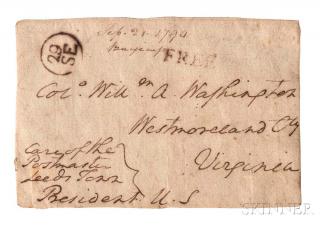 Sep. 21. 1794
29
SE
FREE
Colo. Will.m A. Washington
Westmoreland Cty
Virginia
Care of the
Postmaster
Leeds Town
President U.S
SKINNER